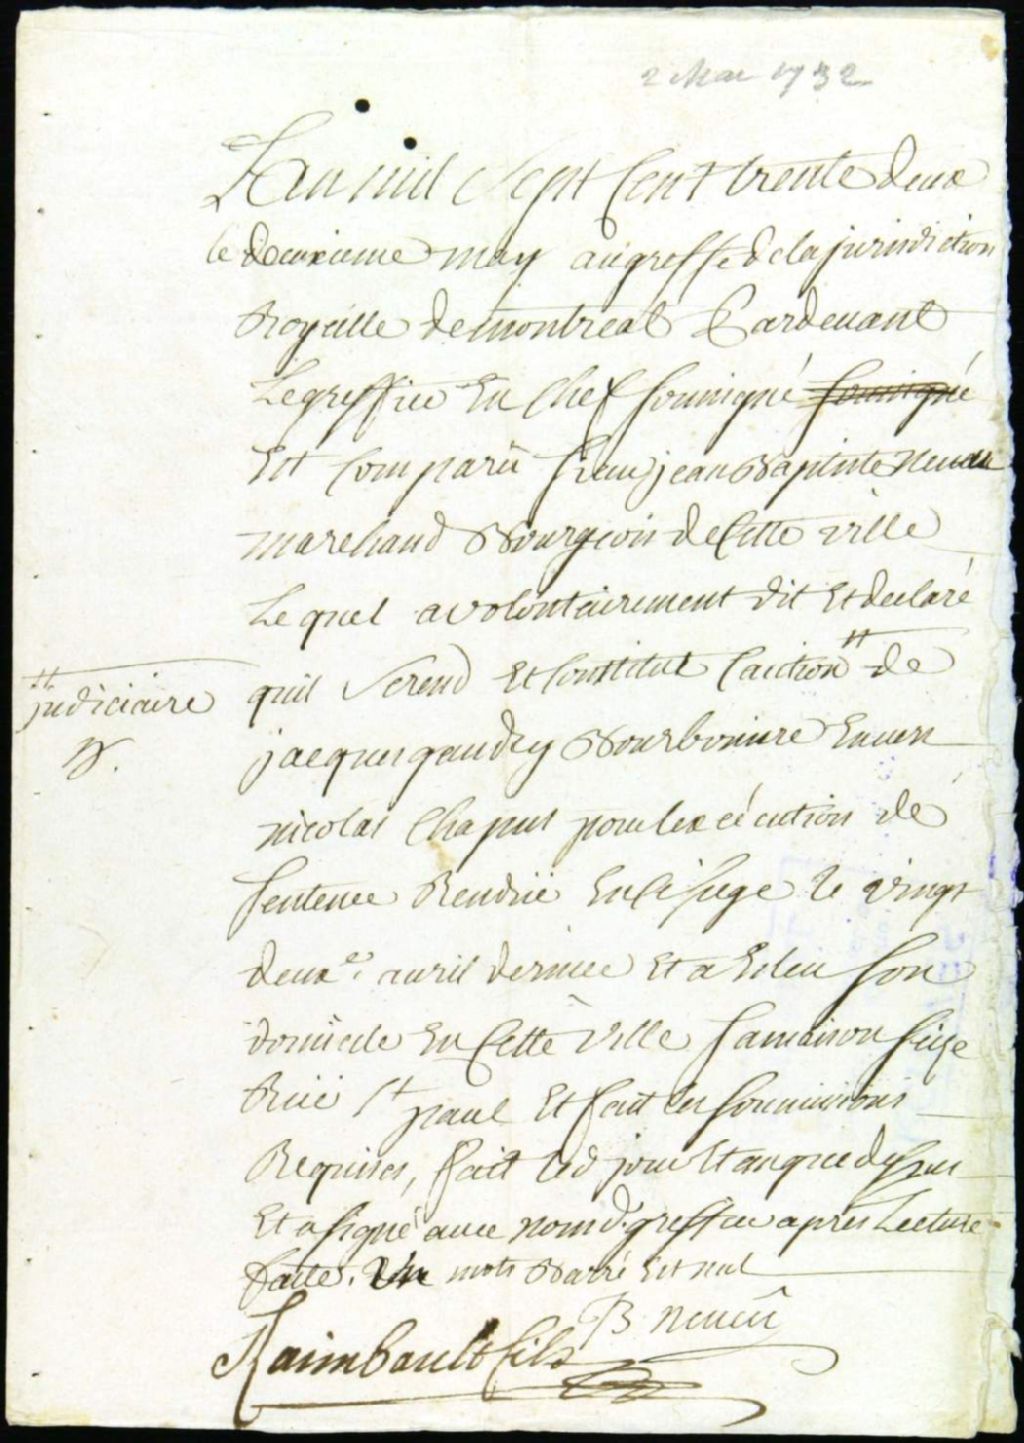 2 Mai 1732
Lan mil Sept Cent trente deux
le deuxieme may au greffe de la jurisdiction
Royalle de montreal Pardevant
Le greffier En Chef soussigné soussigné
Est Comparû Sieur jean Baptiste Neveu
marchand Bourgeois de Cette ville
Lequel a volontairement dit Et declaré
quil Serend Et Constitue Caution # de
# judiciaire
jacques gaudry Bourboniere Envers
nicolas Chaput pour lexécution de
sentence Rendüe En Ce siege le vingt
deuxe. avril dernier Et a Esleu son
domicile En Cette Ville sa maison size
Rüe St paul Et fait les soumissions
Requises, fait Led jour Et an que dessus
Et a signé avec nous d. greffier apres Lecture
faite. Un mots Barré Est nul
B Neveu
Raimbault fils